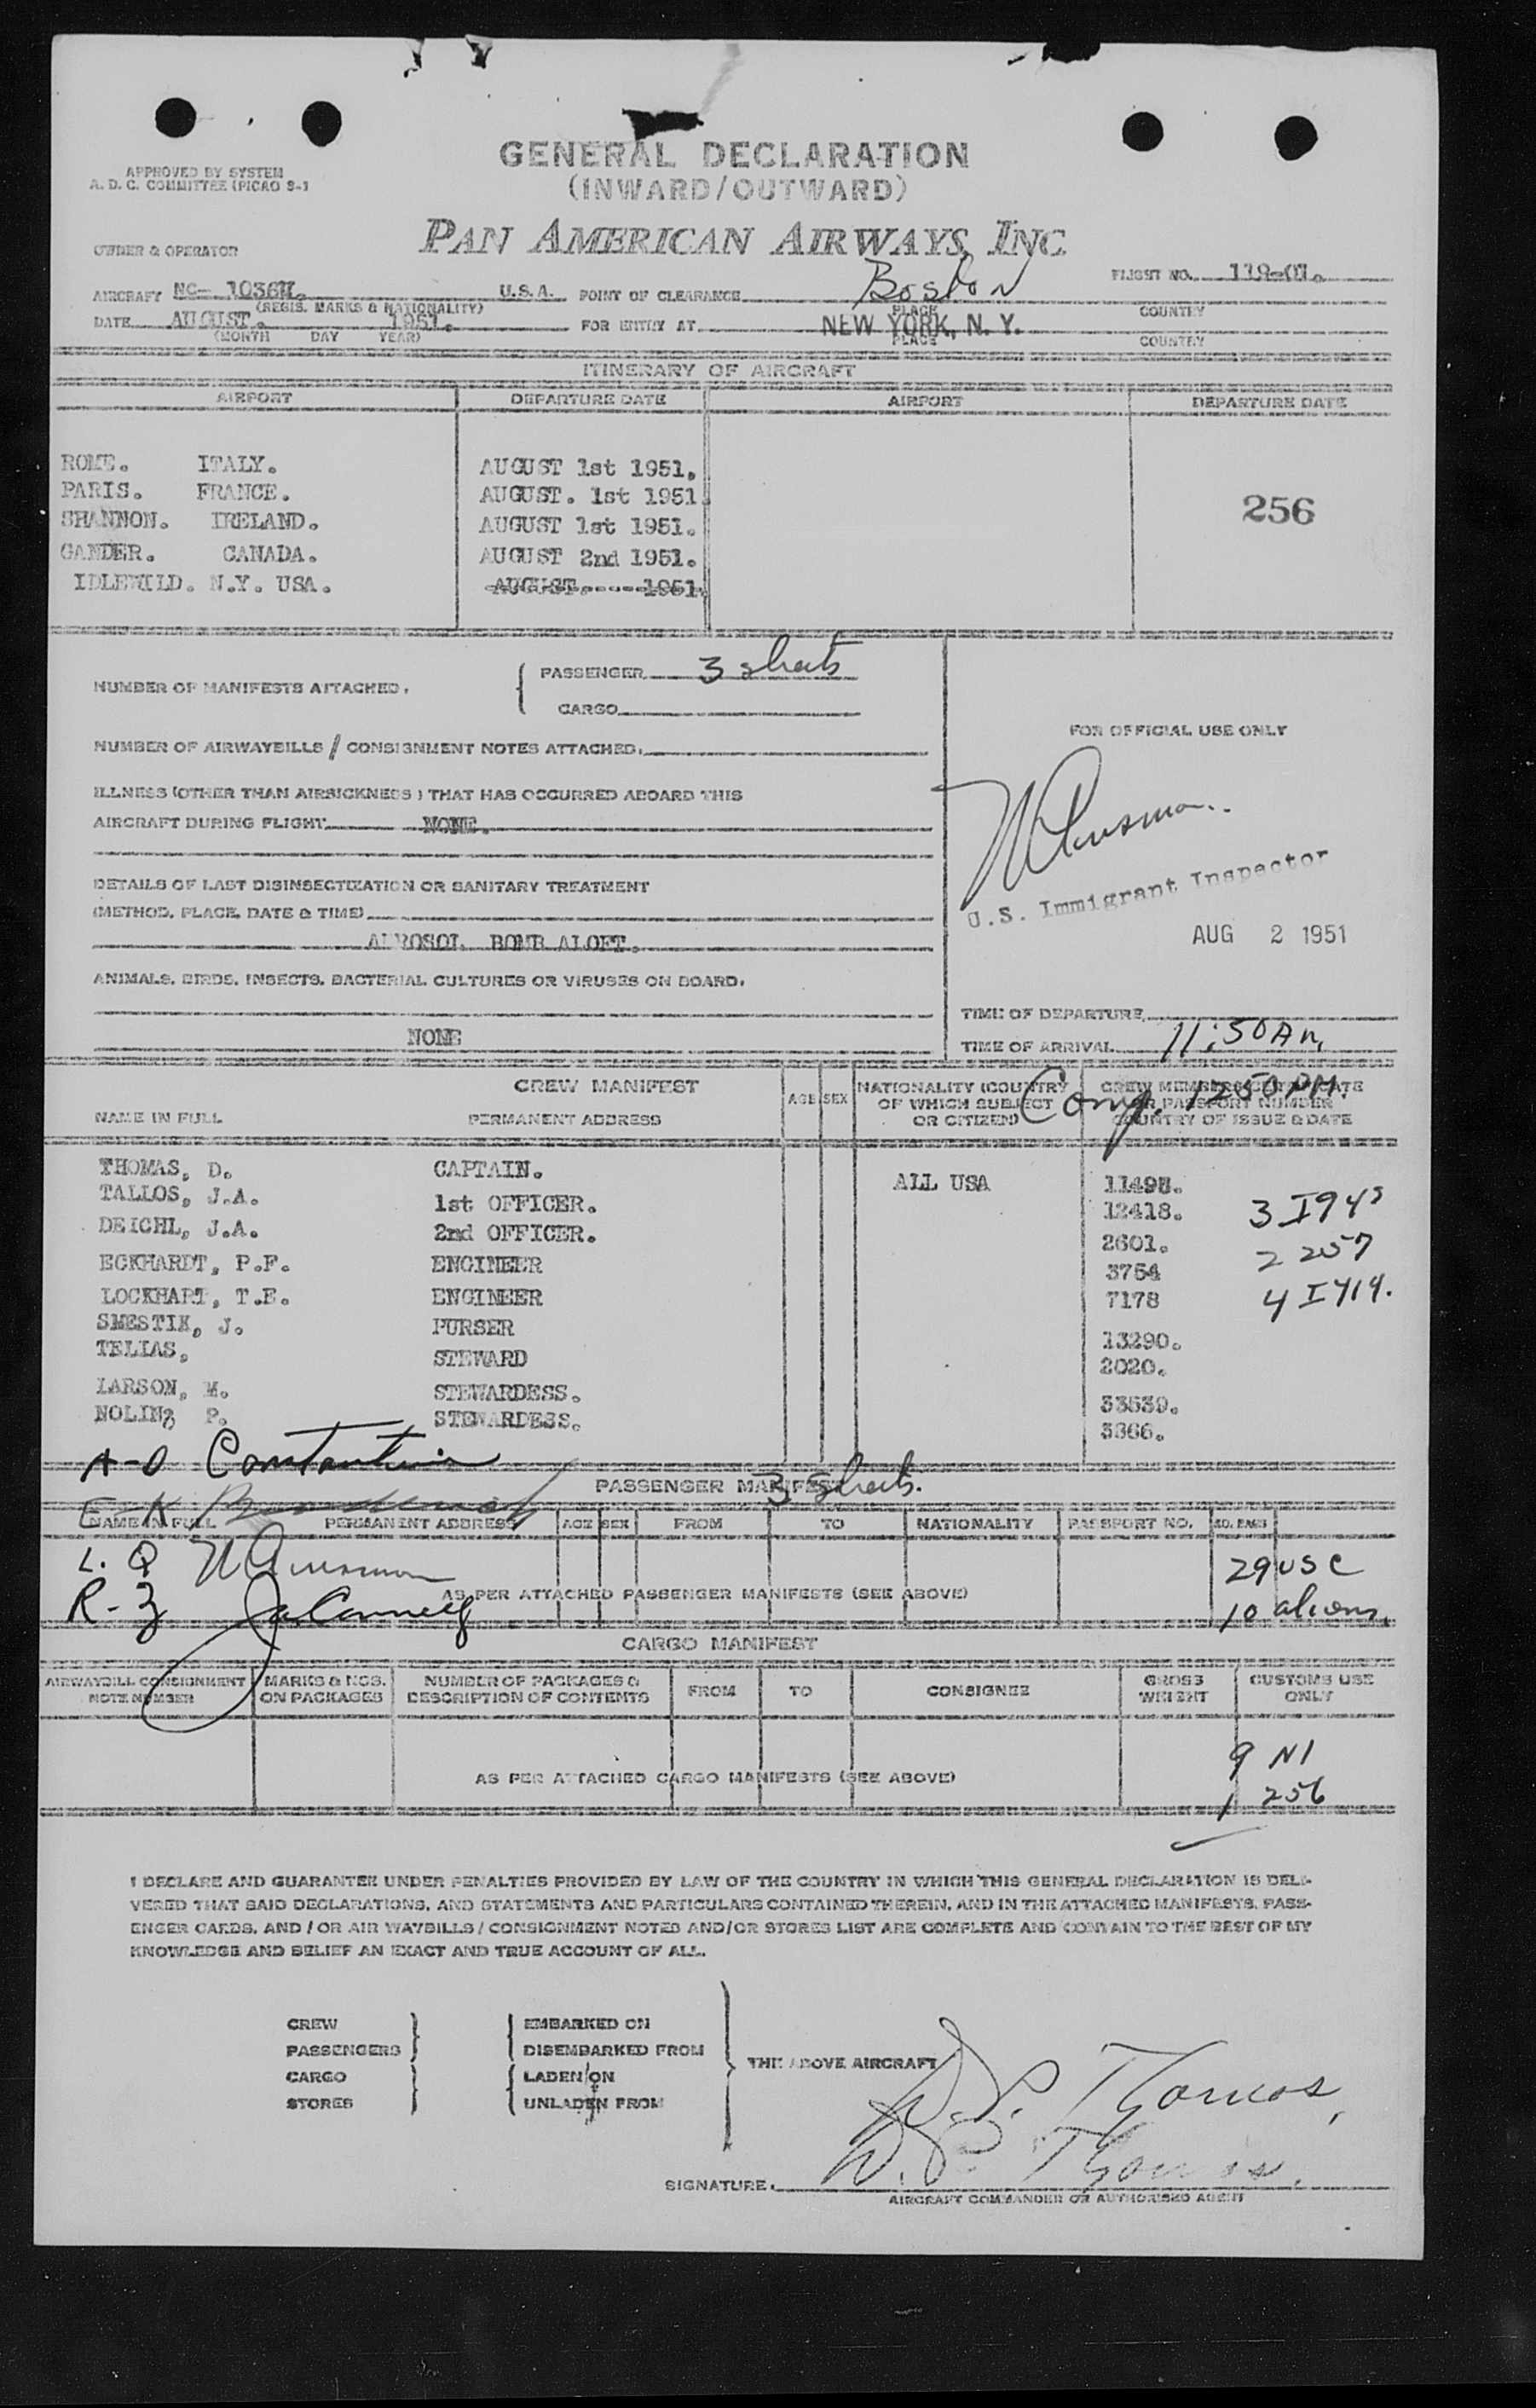 GENERAL DECLARATION
(INWARD/OUTWARD)
APPROVED BY SYSTEM
A. D. C. COMMITTEE (PICAO 9-1
PAN AMERICAN AIRWAYS, INC
OWNER & OPERATOR
FLIGHT NO.
AIRCRAFT NC- 1036 U.S.A. POINT OF CLEARANCE Boston
(REGIS. MARKS & NATIONALITY) PLACE COUNTRY
DATE AUGUST. 1951. FOR ENTRY AT NEW YORK, N. Y.
(MONTH DAY YEAR) PLACE COUNTRY
ITINERARY OF AIRCRAFT
AIRPORT DEPARTURE DATE AIRPORT DEPARTURE DATE
ROME. ITALY. AUGUST 1st 1951.
PARIS. FRANCE. AUGUST. 1st 1951.
256
SHANNON. IRELAND. AUGUST 1st 1951.
GANDER. CANADA. AUGUST 2nd 1951.
IDLEWILD. N.Y. USA. AUGUST.----1951.
NUMBER OF MANIFESTS ATTACHED. { PASSENGER 3 sheets
CARGO
FOR OFFICIAL USE ONLY
NUMBER OF AIRWAYBILLS / CONSIGNMENT NOTES ATTACHED.
ILLNESS (OTHER THAN AIRSICKNESS) THAT HAS OCCURRED ABOARD THIS
AIRCRAFT DURING FLIGHT NONE.
DETAILS OF LAST DISINSECTIZATION OR SANITARY TREATMENT
(METHOD, PLACE, DATE & TIME)
U.S. Immigrant Inspector
AUG 2 1951
AEROSOL BOMB ALOFT.
ANIMALS, BIRDS, INSECTS, BACTERIAL CULTURES OR VIRUSES ON BOARD.
NONE
TIME OF DEPARTURE
TIME OF ARRIVAL 11:50 Am.
Comp. 1250 PM.
CREW MANIFEST
NAME IN FULL PERMANENT ADDRESS AGE SEX NATIONALITY (COUNTRY OF WHICH SUBJECT OR CITIZEN) CREW MEMBERS CERTIFICATE OR PASSPORT NUMBER COUNTRY OF ISSUE & DATE
THOMAS, D. CAPTAIN. ALL USA
TALLOS, J.A. 1st OFFICER. 12418.
DEICHL, J.A. 2nd OFFICER. 2601. 2 257
ECKHARDT, P.F. ENGINEER 3754
LOCKHART, T.E. ENGINEER 7178
SMESTIK, J. PURSER 13290.
TELIAS, STEWARD 2020.
LARSON, M. STEWARDESS.
NOLIN, P. STEWARDESS. 3366.
A-O Constantine
PASSENGER MANIFEST 3 sheets.
E-K
NAME IN FULL PERMANENT ADDRESS AGE SEX FROM TO NATIONALITY PASSPORT NO. NO. BAGS
L. Q
29 USC
AS PER ATTACHED PASSENGER MANIFESTS (SEE ABOVE)
R-Z
10 aliens.
CARGO MANIFEST
AIRWAYBILL CONSIGNMENT NOTE NUMBER MARKS & NOS. ON PACKAGES NUMBER OF PACKAGES & DESCRIPTION OF CONTENTS FROM TO CONSIGNEE GROSS WEIGHT CUSTOMS USE ONLY
9 NI
AS PER ATTACHED CARGO MANIFESTS (SEE ABOVE)
1 256
I DECLARE AND GUARANTEE UNDER PENALTIES PROVIDED BY LAW OF THE COUNTRY IN WHICH THIS GENERAL DECLARATION IS DELI-
VERED THAT SAID DECLARATIONS, AND STATEMENTS AND PARTICULARS CONTAINED THEREIN, AND IN THE ATTACHED MANIFESTS, PASS-
ENGER CARDS, AND / OR AIR WAYBILLS / CONSIGNMENT NOTES AND/OR STORES LIST ARE COMPLETE AND CONTAIN TO THE BEST OF MY
KNOWLEDGE AND BELIEF AN EXACT AND TRUE ACCOUNT OF ALL.
CREW EMBARKED ON
PASSENGERS DISEMBARKED FROM
THE ABOVE AIRCRAFT
CARGO LADEN ON
STORES UNLADEN FROM
D. P. Thomas,
SIGNATURE. D. P. Thomas.
AIRCRAFT COMMANDER OR AUTHORISED AGENT